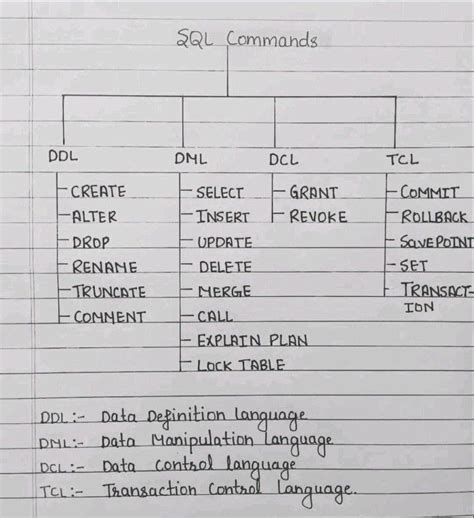 SQL Commands
DDL DML DCL TCL
CREATE SELECT GRANT COMMIT
ALTER INSERT REVOKE ROLLBACK
DROP UPDATE SAVEPOINT
RENAME DELETE SET
TRUNCATE MERGE TRANSACT-
COMMENT CALL ION
EXPLAIN PLAN
LOCK TABLE
DDL :- Data Definition language
DML :- Data Manipulation language
DCL :- Data control language
TCL :- Transaction Control language.